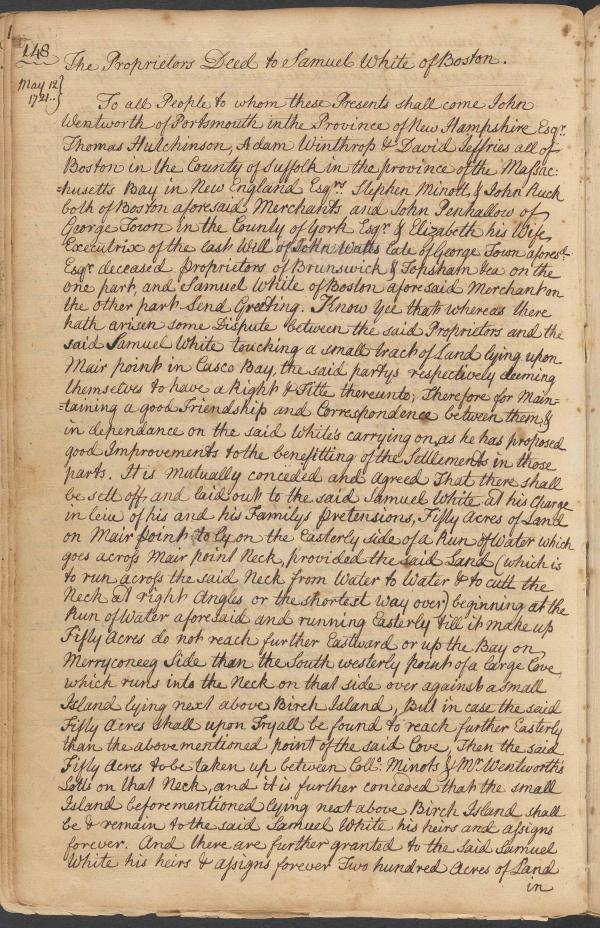 148
The Proprietors Deed to Samuel White of Boston.
May 12
1721..}
To all People to whom these Presents shall come John
Wentworth of Portsmouth in the Province of New Hampshire Esqr.
Thomas Hutchinson, Adam Winthrop & David Jeffries all of
Boston in the County of Suffolk in the province of the Massac:
=husetts Bay in New England Esqrs. Stephen Minott, & John Ruck
both of Boston aforesaid Merchants and John Penhallow of
George Town in the County of York Esqr. & Elizabeth his Wife
Executrix of the last Will of John Watts late of George Town aforesd.
Esqr. deceased Proprietors of Brunswick & Topsham &ca on the
one part, and Samuel White of Boston aforesaid Merchant on
the other part Send Greeting. Know Yee that whereas there
hath arisen some Dispute between the said Proprietors and the
said Samuel White touching a small tract of Land lying upon
Mair point in Casco Bay, the said partys respectively deeming
themselves to have a Right & Title thereunto; Therefore for Main=
=taining a good Friendship and Correspondence between them, &
in dependance on the said White's carrying on, as he has proposed
good Improvements to the benefitting of the Settlements in those
parts. It is Mutually conceded and agreed That there shall
be sett off and laid out to the said Samuel White at his Charge
in leiu of his and his Familys pretensions, Fifty Acres of Land
on Mair Point to ly on the Easterly side of a Run of Water which
goes across Mair point Neck, provided the said Land (which is
to run across the said Neck from Water to Water & to cutt the
Neck at right Angles or the shortest way over) beginning at the
Run of Water aforesaid and running Easterly till it make up
Fifty Acres do not reach further Eastward or up the Bay on
Merryconeeg Side than the South westerly point of a large Cove
which runs into the Neck on that side over against a small
Island lying next above Birch Island, But in case the said
Fifty Acres shall upon Tryall be found to reach further Easterly
than the abovementioned point of the said Cove, Then the said
Fifty Acres to be taken up between Collo. Minots & Mr. Wentworth's
Lotts on that Neck, and it is further conceded that the small
Island beforementioned lying next above Birch Island shall
be & remain to the said Samuel White his heirs and assigns
forever. And there are further granted to the said Samuel
White his heirs & assigns forever Two hundred Acres of Land
in